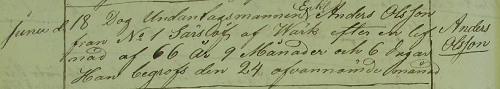 Junii d. 18 Dog Undantagsmannen Enkl. Anders Olsson
från No 1 Särslöf af Wärk efter en lef
nad af 66 år 9 Månader och 6 dagar
Han begrofs den 24 ofvannämnde månad
Anders
Olsson